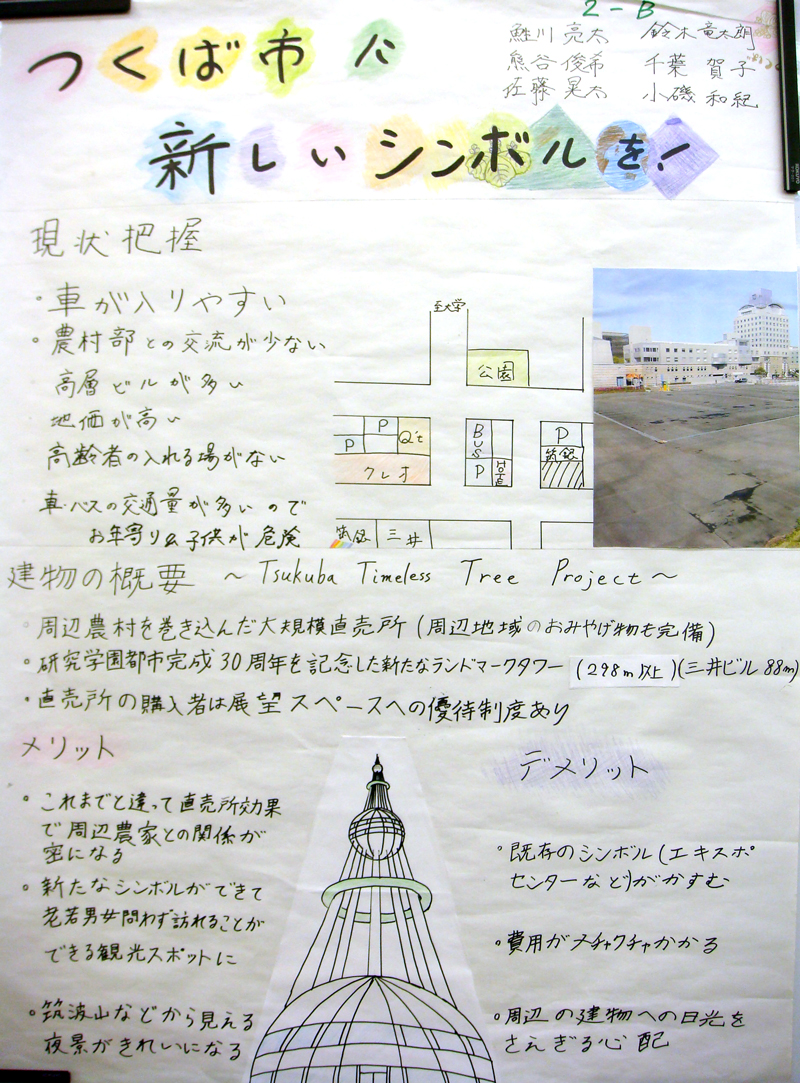 2-B
鮏川 亮太 鈴木竜太朗
熊谷俊希 千葉 賀子
佐藤 晃太 小磯 和紀
つくば市に
新しいシンボルを!
現状把握
・車が入りやすい
・農村部との交流が少ない
高層ビルが多い
地価が高い
高齢者の入れる場がない
車・バスの交通量が多いので
お年寄り&子供が危険
至大学
公園
P
P
Q't
クレオ
BUS
P
P
筑銀
筑銀
三井
建物の概要 ～Tsukuba Timeless Tree Project～
・周辺農村を巻き込んだ大規模直売所(周辺地域のおみやげ物も完備)
・研究学園都市完成30周年を記念した新たなランドマークタワー (298m以上)(三井ビル88m)
・直売所の購入者は展望スペースへの優待制度あり
メリット
・これまでと違って直売所効果
で周辺農家との関係が
密になる
・新たなシンボルができて
老若男女問わず訪れることが
できる観光スポットに
・筑波山などから見える
夜景がきれいになる
デメリット
・既存のシンボル(エキスポ
センターなど)がかすむ
・費用がメチャクチャかかる
・周辺の建物への日光を
さえぎる心配